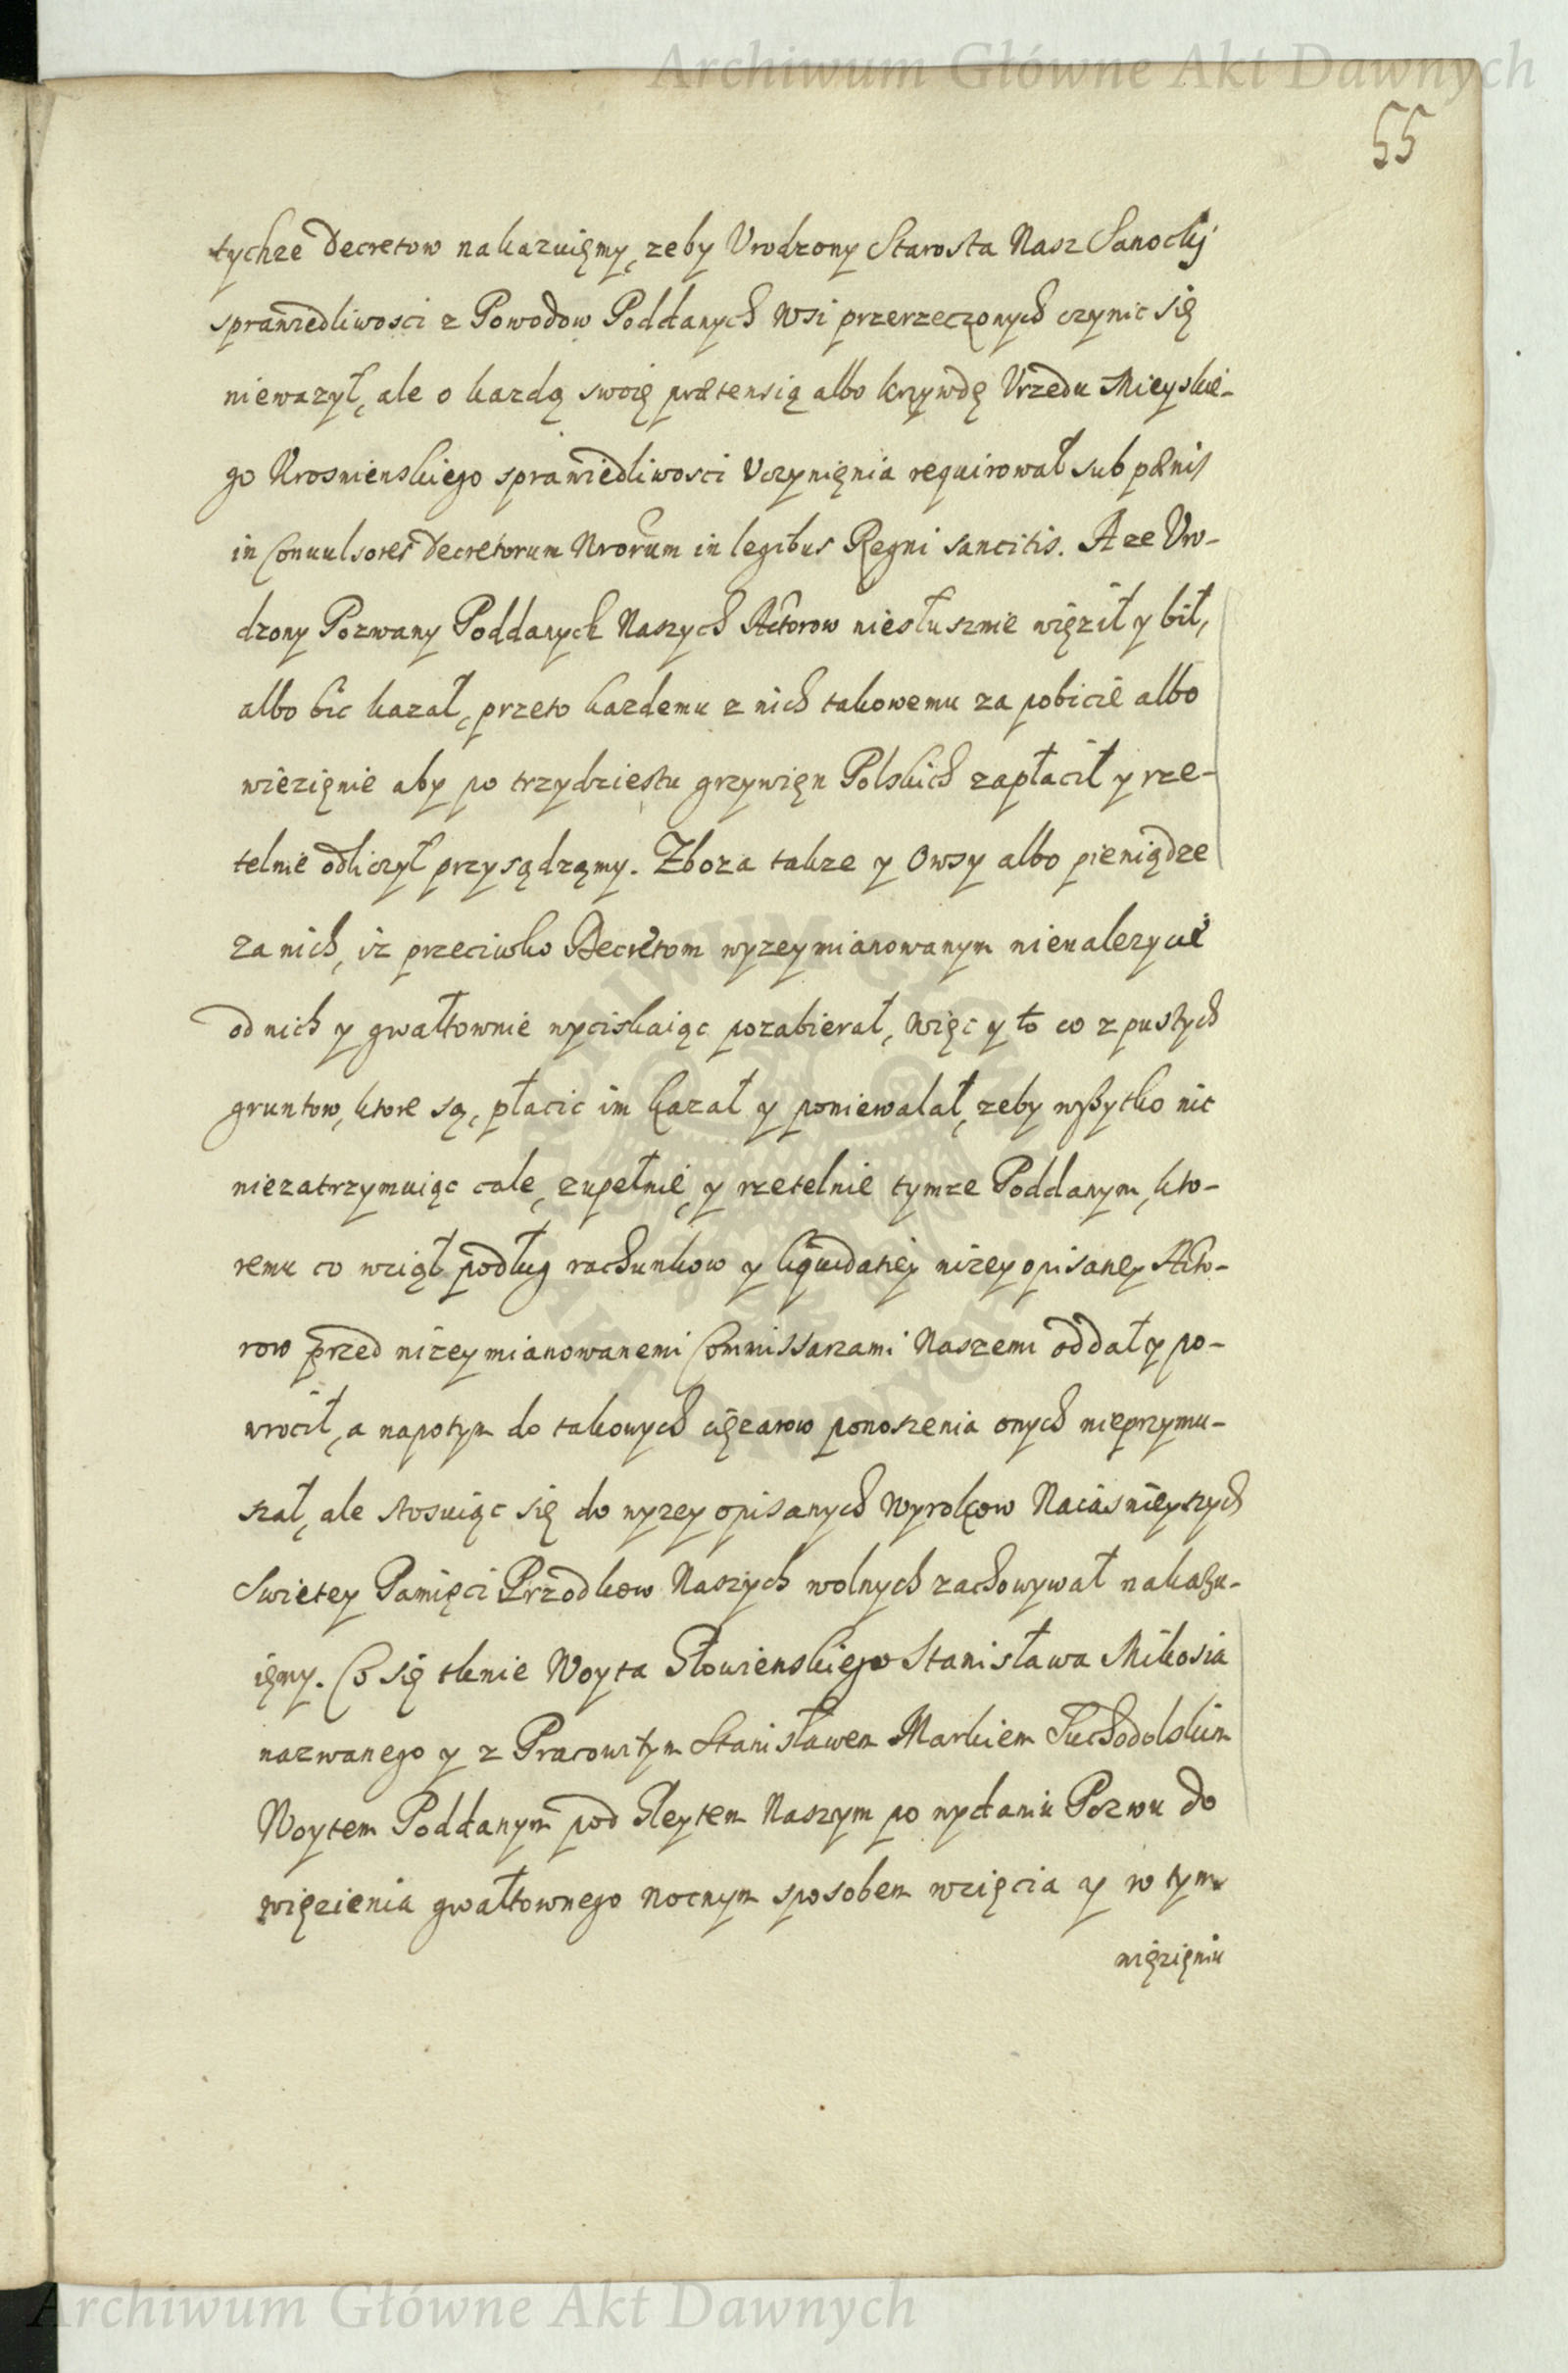 Archiwum Główne Akt Dawnych
55
tychze Decretow nakazuięmy, zeby Vrodzony Starosta Nasz Sanockij
sprawiedliwosci z Powodow Poddanych Wsi przerzeczonych czynic się
niewazył, ale o kazdą swoię prætensią albo krzywdę Vrzedu Mieyskie-
go Krosnienskiego sprawiedliwosci Vczynięnia requirował sub pœnis
in Conuulsores Decretorum Nrorum in legibus Regni sancitis. A ze Vro-
dzony Pozwany Poddanych Naszych Actorow niesłusznie więził y bił,
albo bic kazał, przeto kazdemu z nich takowemu za pobicie albo
wiezięnie aby po trzydziestu grzywięn Polskich zapłacił y rze-
telnie odliczył przysądzamy. Zboza takze y Owsy albo pieniądze
za nich, iz przeciwko Decretom wyzey mianowanym nienalezycie
od nich y gwałtownie wyciskaiąc pozabierał, więc y to co z pustych
gruntow, ktore są, płacic im kazał y poniewalał, zeby wszytko nic
niezatrzymuiąc cale, zupełnie, y rzetelnie tymze Poddanym, kto-
remu co wziął podług rachunkow y liquidatiej nizey opisaney Acto-
row przed nizey mianowanemi Commissarzami Naszemi oddał y po-
wrocił, a napotym do takowych cięzarow ponoszenia onych nieprzymu-
szał, ale stosuiąc się do wyzey opisanych Wyrokow Naiasnieyszych
Swietey Pamięci Przodkow Naszych wolnych zachowywał nakazu-
ięmy. Co się tknie Woyta Głowienskiego Stanisława Mikosia
nazwanego y z Pracowitym Stanisławem Markiem Suchodolskim
Woytem Poddanym pod Gleytem Naszym po wydaniu Pozwu do
więzienia gwałtownego nocnym sposobem wzięcia y w tym
więzięniu
Archiwum Główne Akt Dawnych